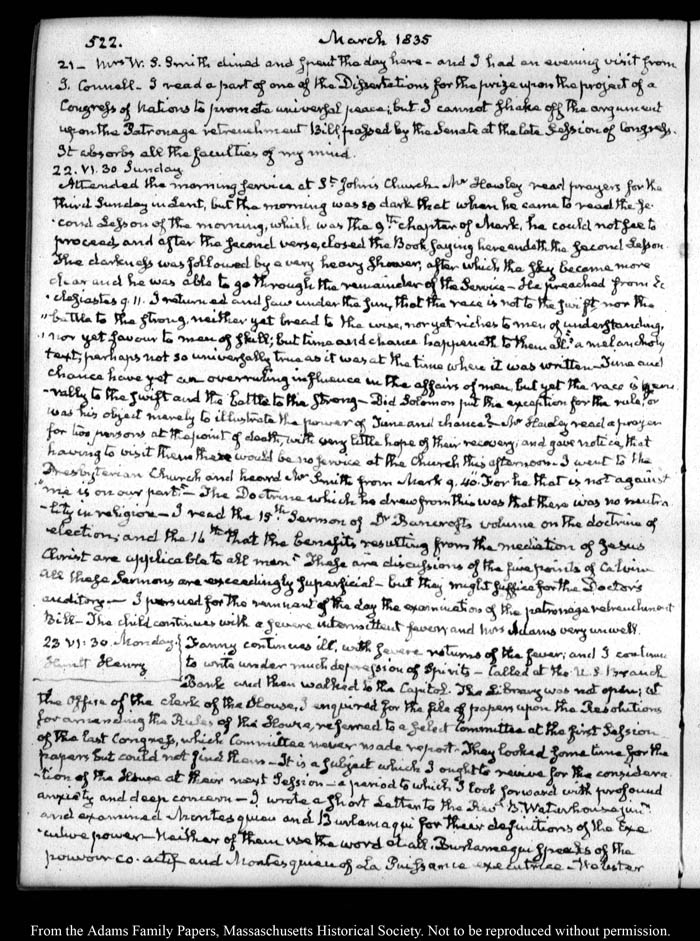 522. March 1835
21 - Mrs W. S. Smith dined and spent the day here - and I had an evening visit from
J. Connell - I read a part of one of the Dissertations for the prize upon the project of a
Congress of Nations to promote universal peace; but I cannot shake off the argument
upon the Patronage retrenchment Bill passed by the Senate at the late Session of Congress.
It absorbs all the faculties of my mind.
22. VI. 30 Sunday
Attended the morning service at St. John's Church. Mr Hawley read prayers for the
third Sunday in Lent, but the morning was so dark that when he came to read the Se-
cond Lesson of the morning, which was the 9th chapter of Mark, he could not see to
proceed, and after the second verse, closed the Book saying here endeth the second Lesson.
The darkness was followed by a very heavy shower, after which the sky became more
clear and he was able to go through the remainder of the Service - He preached from Ec
-clesiastes 9. 11. I returned and saw under the sun, that the race is not to the swift, nor the
"battle to the strong, neither yet bread to the wise, nor yet riches to men of understanding,
"nor yet favour to men of skill; but time and chance happeneth to them all." a melancholy
text; perhaps not so universally true as it was at the time where it was written - Time and
chance have yet an overruling influence in the affairs of men, but yet the race is gene-
-rally to the swift and the battle to the strong - Did Solomon put the exception for the rule, or
was his object merely to illustrate the power of Time and chance? Mr Hawley read a prayer
for two persons at the point of death, with very little hope of their recovery, and gave notice, that
having to visit them there would be no service at the Church this afternoon - I went to the
Presbyterian Church and heard Mr Smith from Mark 9. 40. "For he that is not against
"me is on our part" - The Doctrine which he drew from this was that there was no neutra
-lity in religion - I read the 15th Sermon of Dr Bancroft's volume on the doctrine of
election; and the 16th that the benefits resulting from the mediation of Jesus
Christ are applicable to all men. These are discussions of the five points of Calvin
All these Sermons are exceedingly superficial - but they might suffice for the Doctor's
auditory - I pursued for the remnant of the day the examination of the patronage retrenchment
Bill - The child continues with a severe intermittent fever; and Mrs Adams very unwell.
23 VI: 30. Monday. Fanny continues ill, with severe returns of the fever; and I continue
Henry to write under much depression of Spirits - Called at the U. S. Branch
Bank and then walked to the Capitol. The Library was not open; at
the Office of the clerk of the House, I enquired for the file of papers upon the Resolutions
for amending the Rules of the House, referred to a select Committee at the first Session
of the last Congress, which Committee never made report - They looked some time for the
papers but could not find them - It is a subject which I ought to revive for the considera
-tion of the House at their next Session - a period to which I look forward with profound
anxiety and deep concern - I wrote a short Letter to the Revd B. Waterhouse junr
and examined Montesquieu and Burlamaqui for their definitions of the Exe
-cutive power - Neither of them use the word at all. Burlamaqui speaks of the
pouvoir co-actif and Montesquieu of La Puissance executrice - Webster
From the Adams Family Papers, Massachusetts Historical Society. Not to be reproduced without permission.